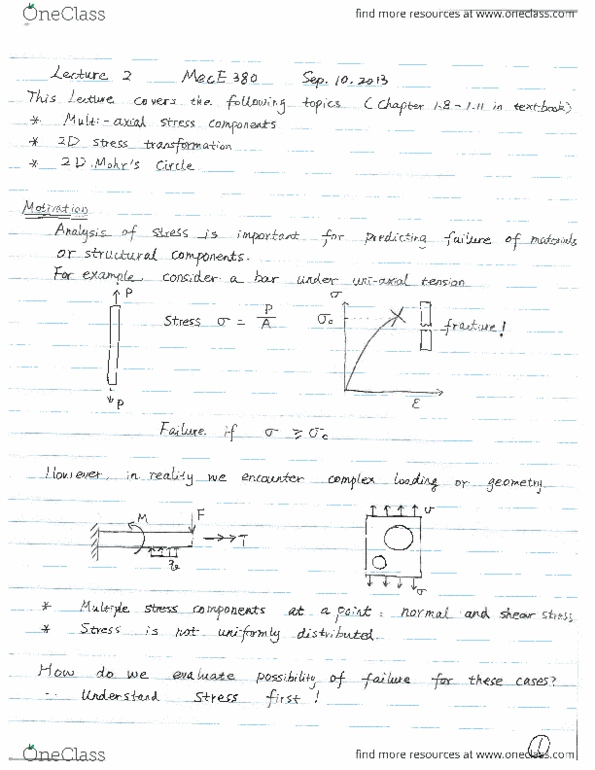 OneClass
find more resources at www.oneclass.com
Lecture 2 MecE 380 Sep. 10. 2013
This Lecture covers the following topics (Chapter 1.8 - 1.11 in textbook)
* Multi-axial stress components
* 2D stress transformation
* 2D Mohr's Circle
Motivation
Analysis of stress is important for predicting failure of materials
or structural components.
For example, consider a bar under uni-axial tension
P
Stress σ = P/A
σ
σc
fracture!
P
ε
Failure if σ ≥ σc
However, in reality we encounter complex loading or geometry.
M F T
σ
σ
* Multiple stress components at a point: normal and shear stress
* Stress is not uniformly distributed.
How do we evaluate possibility of failure for these cases?
-- Understand stress first!
1
OneClass
find more resources at www.oneclass.com